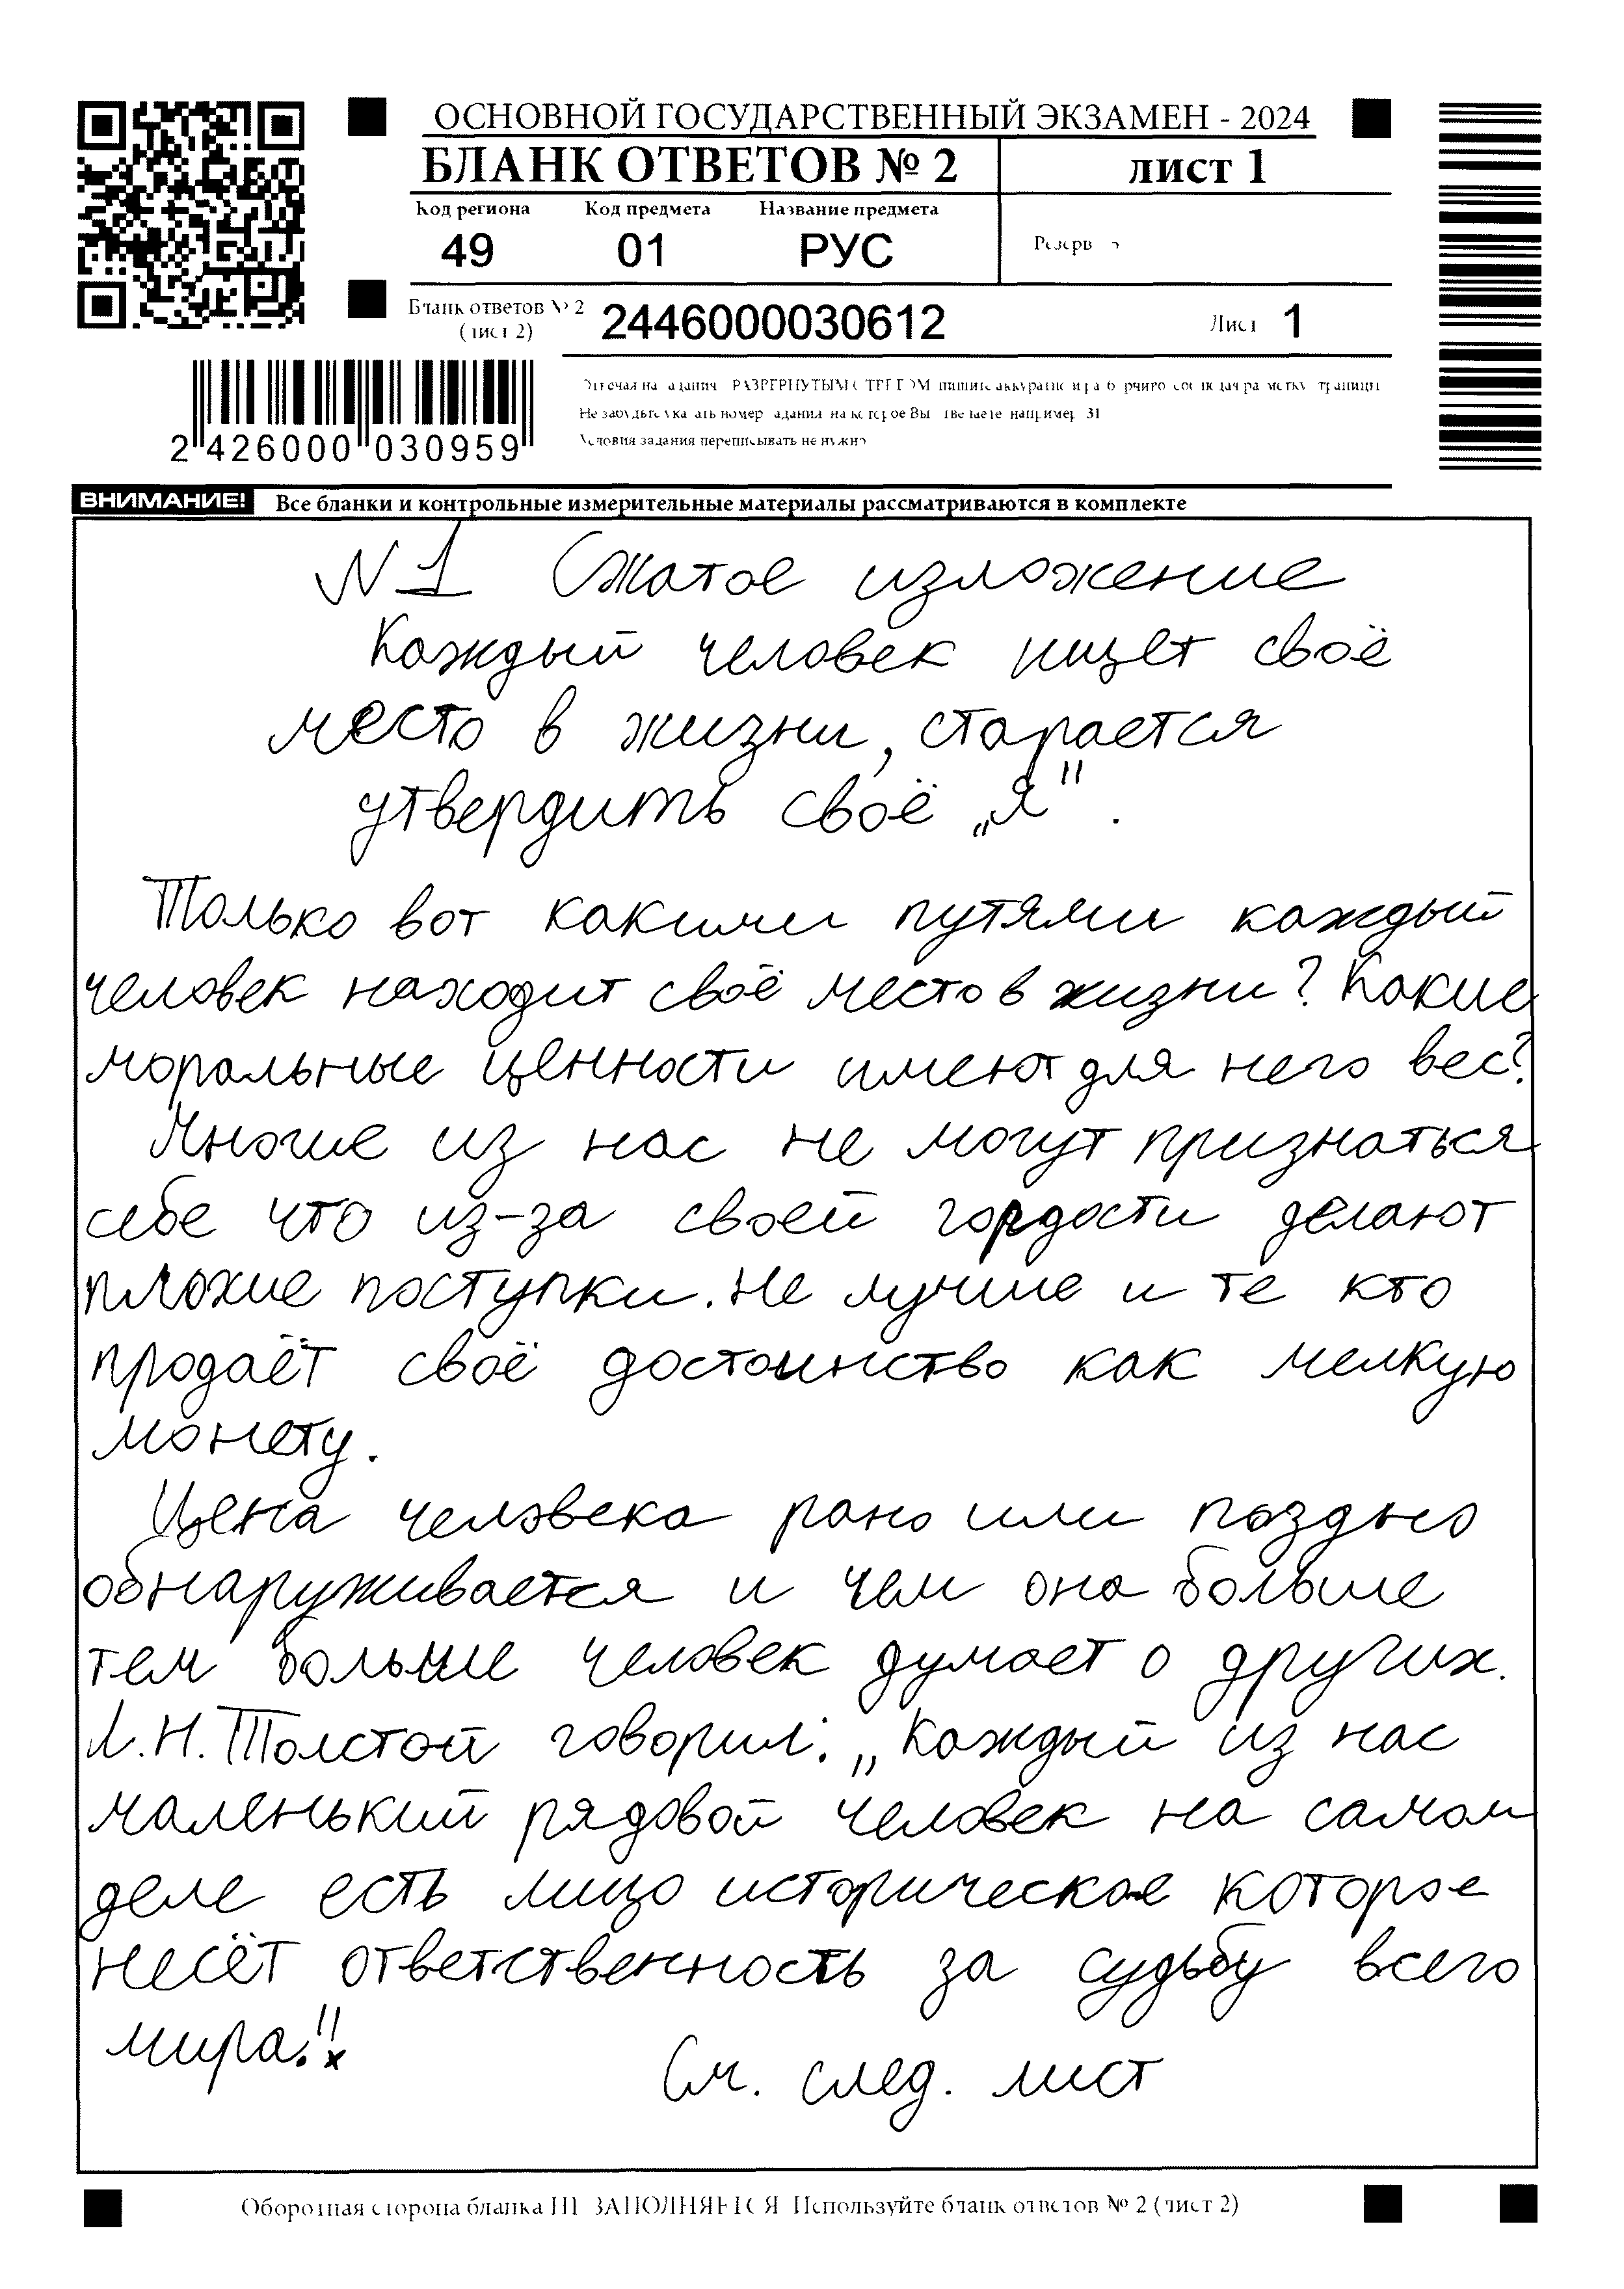 ОСНОВНОЙ ГОСУДАРСТВЕННЫЙ ЭКЗАМЕН - 2024
БЛАНК ОТВЕТОВ № 2 лист 1
Код региона Код предмета Название предмета
49 01 РУС
Резерв
Бланк ответов № 2
(лист 2) 2446000030612 Лист 1
2 426000 030959
Не номер задания на которое Вы например 31
Условия задания переписывать не нужно
ВНИМАНИЕ! Все бланки и контрольные измерительные материалы рассматриваются в комплекте
N 1 Сжатое изложение
Каждый человек ищет своё
место в жизни, старается
утвердить своё „я".
Только вот какими путями каждый
человек находит своё место в жизни? Какие
моральные ценности имеют для него вес?
Многие из нас не могут признаться
себе что из-за своей гордости делают
плохие поступки. Не лучше и те кто
продаёт своё достоинство как мелкую
монету.
Цена человека рано или поздно
обнаруживается и чем она больше
тем больше человек думает о других.
Л.Н. Толстой говорил: „Каждый из нас
маленький рядовой человек на самом
деле есть лицо историческое которое
несёт ответственность за судьбу всего
мира."
См. след. лист
Оборотная сторона бланка НЕ ЗАПОЛНЯЕТСЯ Используйте бланк ответов № 2 (лист 2)